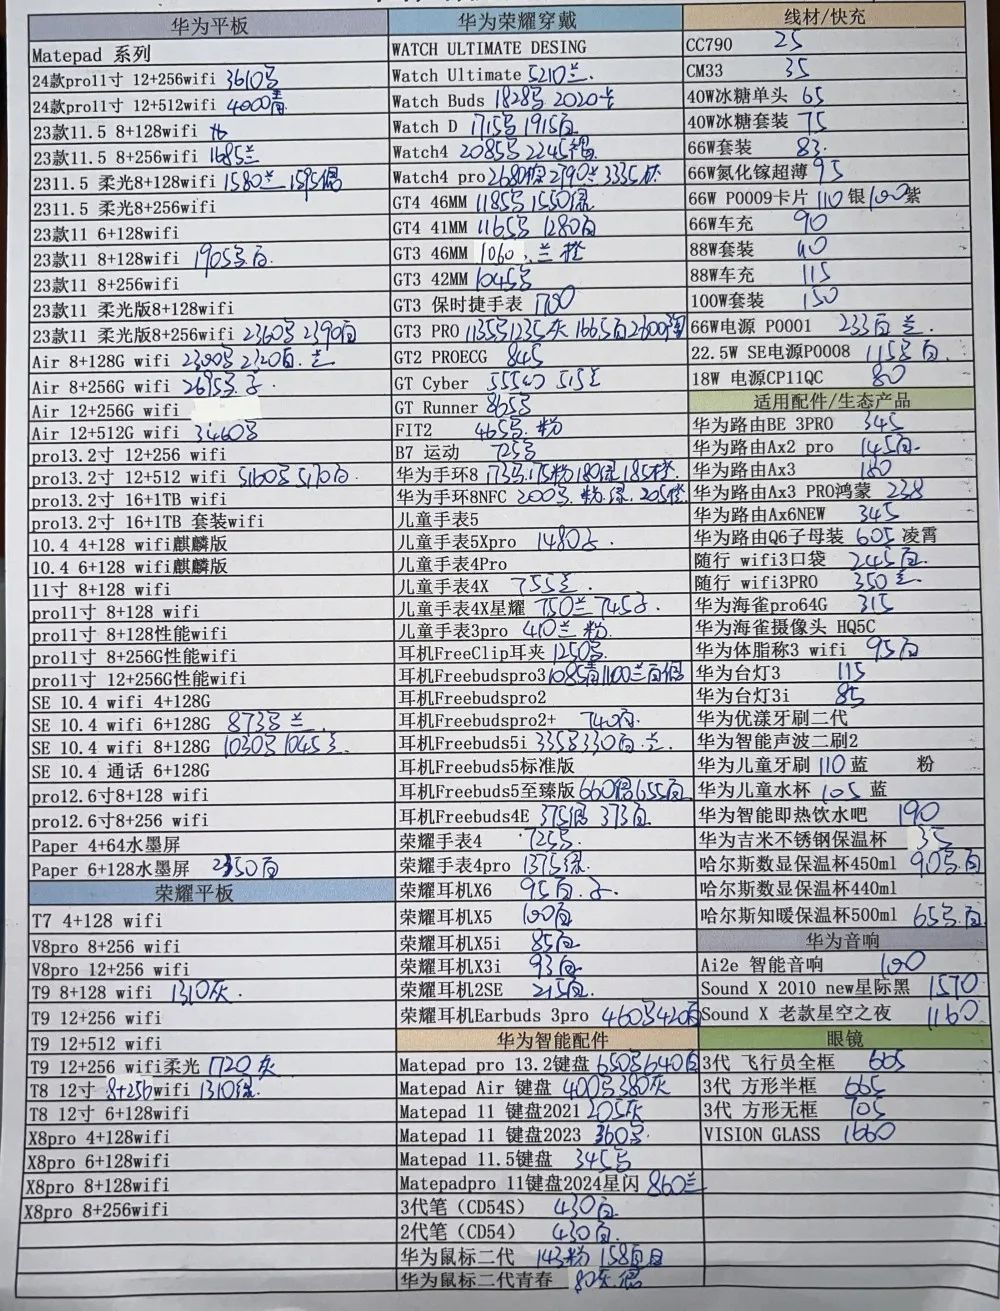 华为平板
Matepad 系列
24款pro11寸 12+256wifi 3610
24款pro11寸 12+512wifi 4000青
23款11.5 8+128wifi
23款11.5 8+256wifi 1685兰
2311.5 柔光8+128wifi 1580兰 1595
2311.5 柔光8+256wifi
23款11 6+128wifi
23款11 8+128wifi 1905
23款11 8+256wifi
23款11 柔光版8+128wifi
23款11 柔光版8+256wifi 2360 2390
Air 8+128G wifi 2300 2320
Air 8+256G wifi 2695
Air 12+256G wifi
Air 12+512G wifi 3460
pro13.2寸 12+256 wifi
pro13.2寸 12+512 wifi 5160 5170
pro13.2寸 16+1TB wifi
pro13.2寸 16+1TB 套装wifi
10.4 4+128 wifi麒麟版
10.4 6+128 wifi麒麟版
11寸 8+128 wifi
pro11寸 8+128 wifi
pro11寸 8+128性能wifi
pro11寸 8+256G性能wifi
pro11寸 12+256G性能wifi
SE 10.4 wifi 4+128G
SE 10.4 wifi 6+128G 873 兰
SE 10.4 wifi 8+128G 1030 1045
SE 10.4 通话 6+128G
pro12.6寸8+128 wifi
pro12.6寸8+256 wifi
Paper 4+64水墨屏
Paper 6+128水墨屏 2350
荣耀平板
T7 4+128 wifi
V8pro 8+256 wifi
V8pro 12+256 wifi
T9 8+128 wifi 1310灰.
T9 12+256 wifi
T9 12+512 wifi
T9 12+256 wifi柔光 1720灰
T8 12寸 8+256wifi 1310绿.
T8 12寸 6+128wifi
X8pro 4+128wifi
X8pro 6+128wifi
X8pro 8+128wifi
X8pro 8+256wifi
华为荣耀穿戴
WATCH ULTIMATE DESING
Watch Ultimate 5210兰.
Watch Buds 1828 2020
Watch D 1715 1915
Watch4 2085 2245
Watch4 pro 2680 2790兰 3335
GT4 46MM 1185 1550绿
GT4 41MM 1165 1280
GT3 46MM 1060. 兰
GT3 42MM 1045
GT3 保时捷手表 1700
GT3 PRO 1135 1235灰 1665 2600
GT2 PROECG 845
GT Cyber 515
GT Runner 865
FIT2 465 粉
B7 运动 725
华为手环8 173 175粉 180绿 185
华为手环8NFC 200 粉.绿. 205
儿童手表5
儿童手表5Xpro 1480
儿童手表4Pro
儿童手表4X 755
儿童手表4X星耀 750兰 745
儿童手表3pro 410兰 粉
耳机FreeClip耳夹 1250
耳机Freebudspro3 1085青1100兰
耳机Freebudspro2
耳机Freebudspro2+ 740
耳机Freebuds5i 335 330
耳机Freebuds5标准版
耳机Freebuds5至臻版 660 655
耳机Freebuds4E 375 373
荣耀手表4 725
荣耀手表4pro 1375绿.
荣耀耳机X6 95
荣耀耳机X5 100
荣耀耳机X5i 85
荣耀耳机X3i 93
荣耀耳机2SE 215
荣耀耳机Earbuds 3pro 460 420
华为智能配件
Matepad pro 13.2键盘 650 640
Matepad Air 键盘 400 380灰
Matepad 11 键盘2021 205灰
Matepad 11 键盘2023 360
Matepad 11.5键盘 345
Matepadpro 11键盘2024星闪 860兰
3代笔（CD54S） 430
2代笔（CD54） 430
华为鼠标二代 143粉 158
华为鼠标二代青春 80灰
线材/快充
CC790 25
CM33 35
40W冰糖单头 65
40W冰糖套装 75
66W套装 83.
66W氮化镓超薄 95
66W P0009卡片 110 银 100紫
66W车充 90
88W套装
88W车充 115
100W套装 150
66W电源 P0001 233 兰.
22.5W SE电源P0008 115
18W 电源CP11QC 80
适用配件/生态产品
华为路由BE 3PRO 345
华为路由Ax2 pro 145
华为路由Ax3 180
华为路由Ax3 PRO鸿蒙 238
华为路由Ax6NEW 345
华为路由Q6子母装 605 凌霄
随行 wifi3口袋 245
随行 wifi3PRO 350
华为海雀pro64G 315
华为海雀摄像头 HQ5C
华为体脂称3 wifi 95
华为台灯3 115
华为台灯3i 85
华为优漾牙刷二代
华为智能声波二刷2
华为儿童牙刷 110 蓝 粉
华为儿童水杯 105 蓝
华为智能即热饮水吧 190
华为吉米不锈钢保温杯 35
哈尔斯数显保温杯450ml 90
哈尔斯数显保温杯440ml
哈尔斯知暖保温杯500ml 65
华为音响
Ai2e 智能音响 100
Sound X 2010 new星际黑 1570
Sound X 老款星空之夜 1160
眼镜
3代 飞行员全框 665
3代 方形半框 665
3代 方形无框 705
VISION GLASS 1660